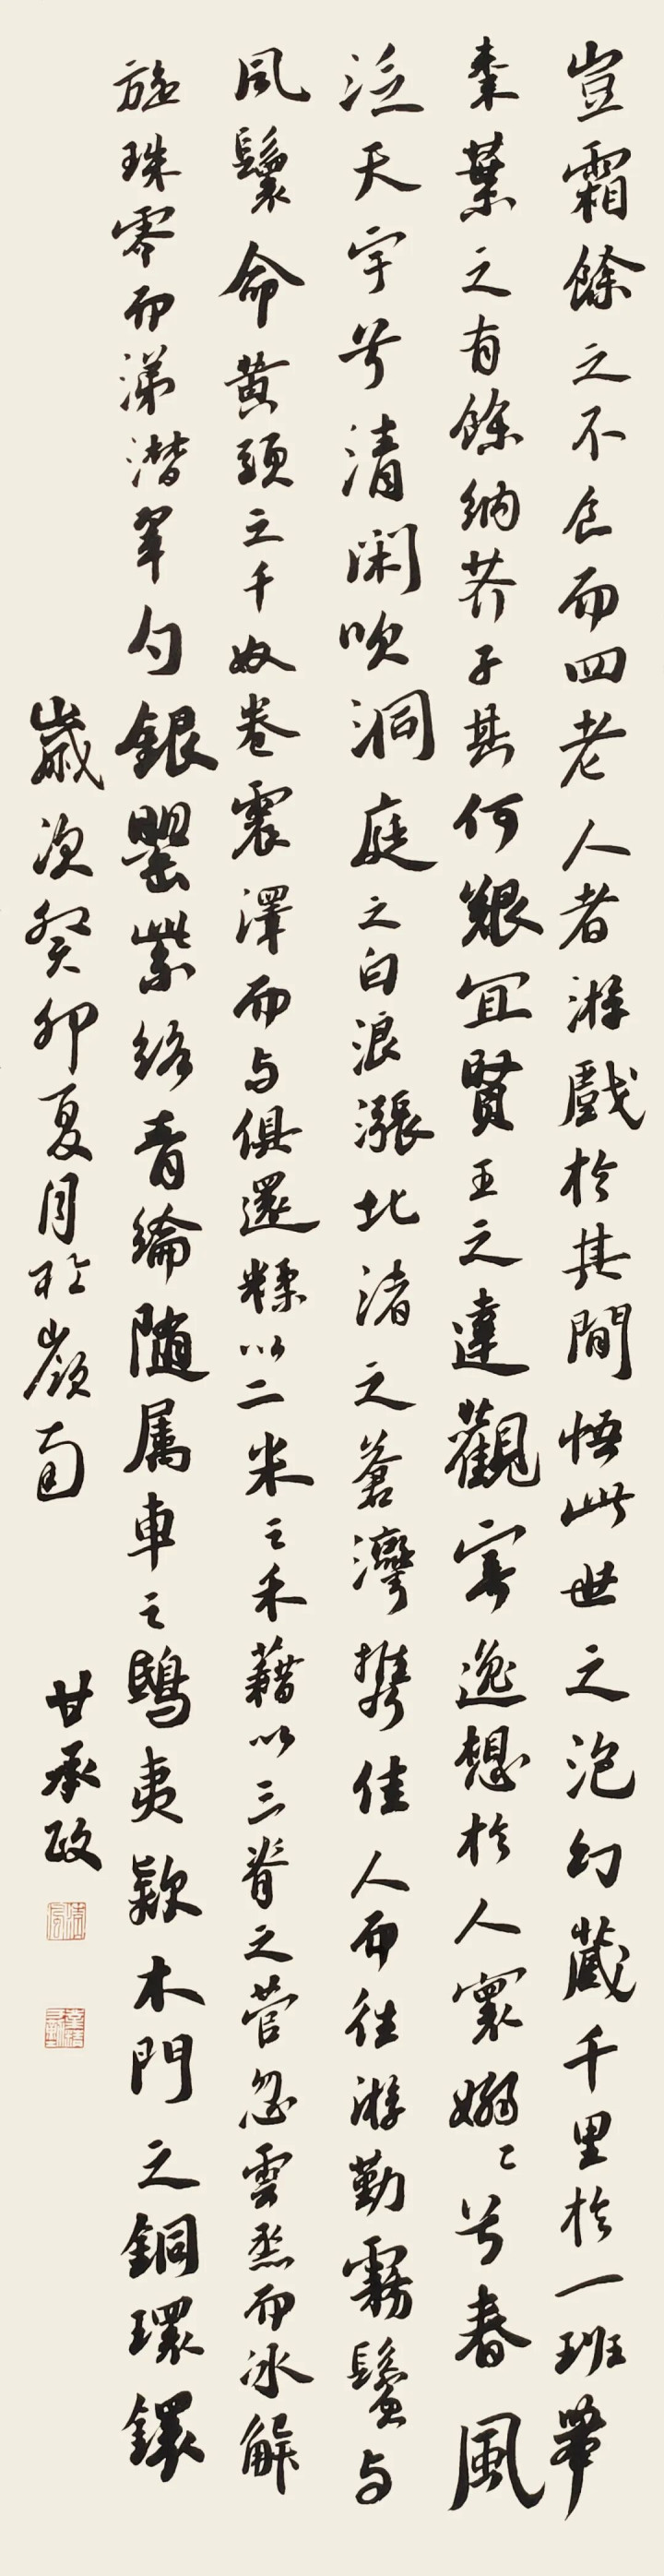 豈霜餘之不食而四老人者游戲於其間悟此世之泡幻藏千里於一班舉
棗葉之有餘納芥子其何艱宜賢王之達觀寄逸想於人寰嫋々兮春風
泛天宇兮清閑吹洞庭之白浪漲北渚之蒼灣攜佳人而往游勤霧鬢与
風鬟命黄頭之千奴卷震澤而与俱還糅以二米之禾藉以三脊之菅忽雲烝而冰解
旋珠零而涕潸翠勺銀罌紫絡青綸随属車之鴟夷款木門之銅環鐶
歲次癸卯夏月於嶺南
甘承政